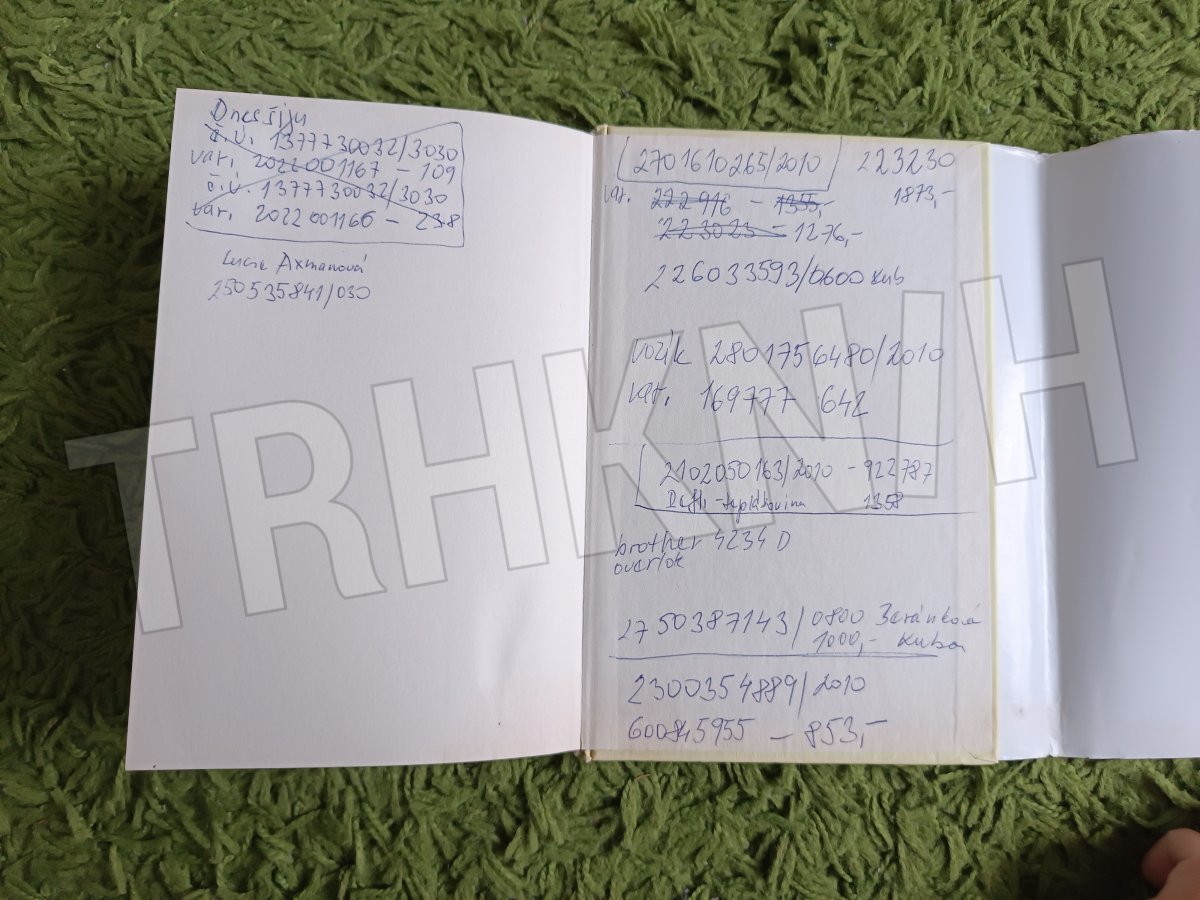 Dnes šiju
č.ú. 1377730032/3030
var. 2022001167 - 109
č.ú. 1377730032/3030
var. 2022001166 - 238
Lucie Axmanová
250535841/030
2701610265/2010 223230
var. 222916 - 1355,- 1873,-
223023 - 1276,-
226033593/0600 Kub
vozík 2801756480/2010
var. 169777 642
2102050163/2010 - 922787
teplákovina 1358
brother 4234 D
overlok
2750387143/0800 Beránková
1000,- Kuba
2300354889/2010
600845955 - 853,-
TRHKNIH